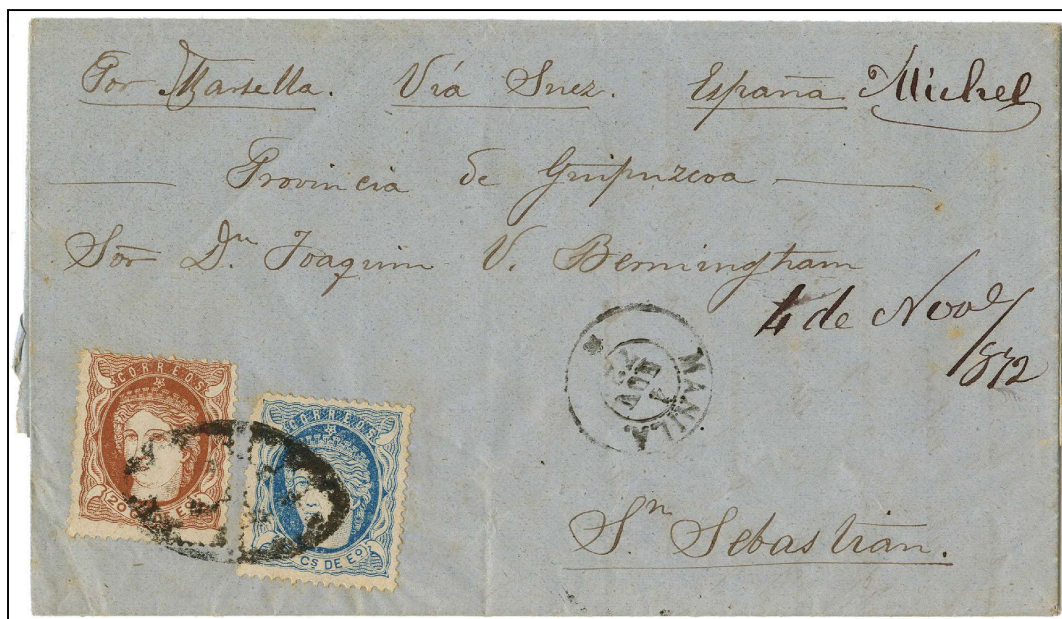 Por Marsella. Vía Suez. España Michel
Provincia de Guipuzcoa
Sor Dn. Joaquim V. Bermingham
4 de Nove/872
MANILA.
CORREOS
20 C
CORREOS
Cs DE Eo
Sn. Sebastian.